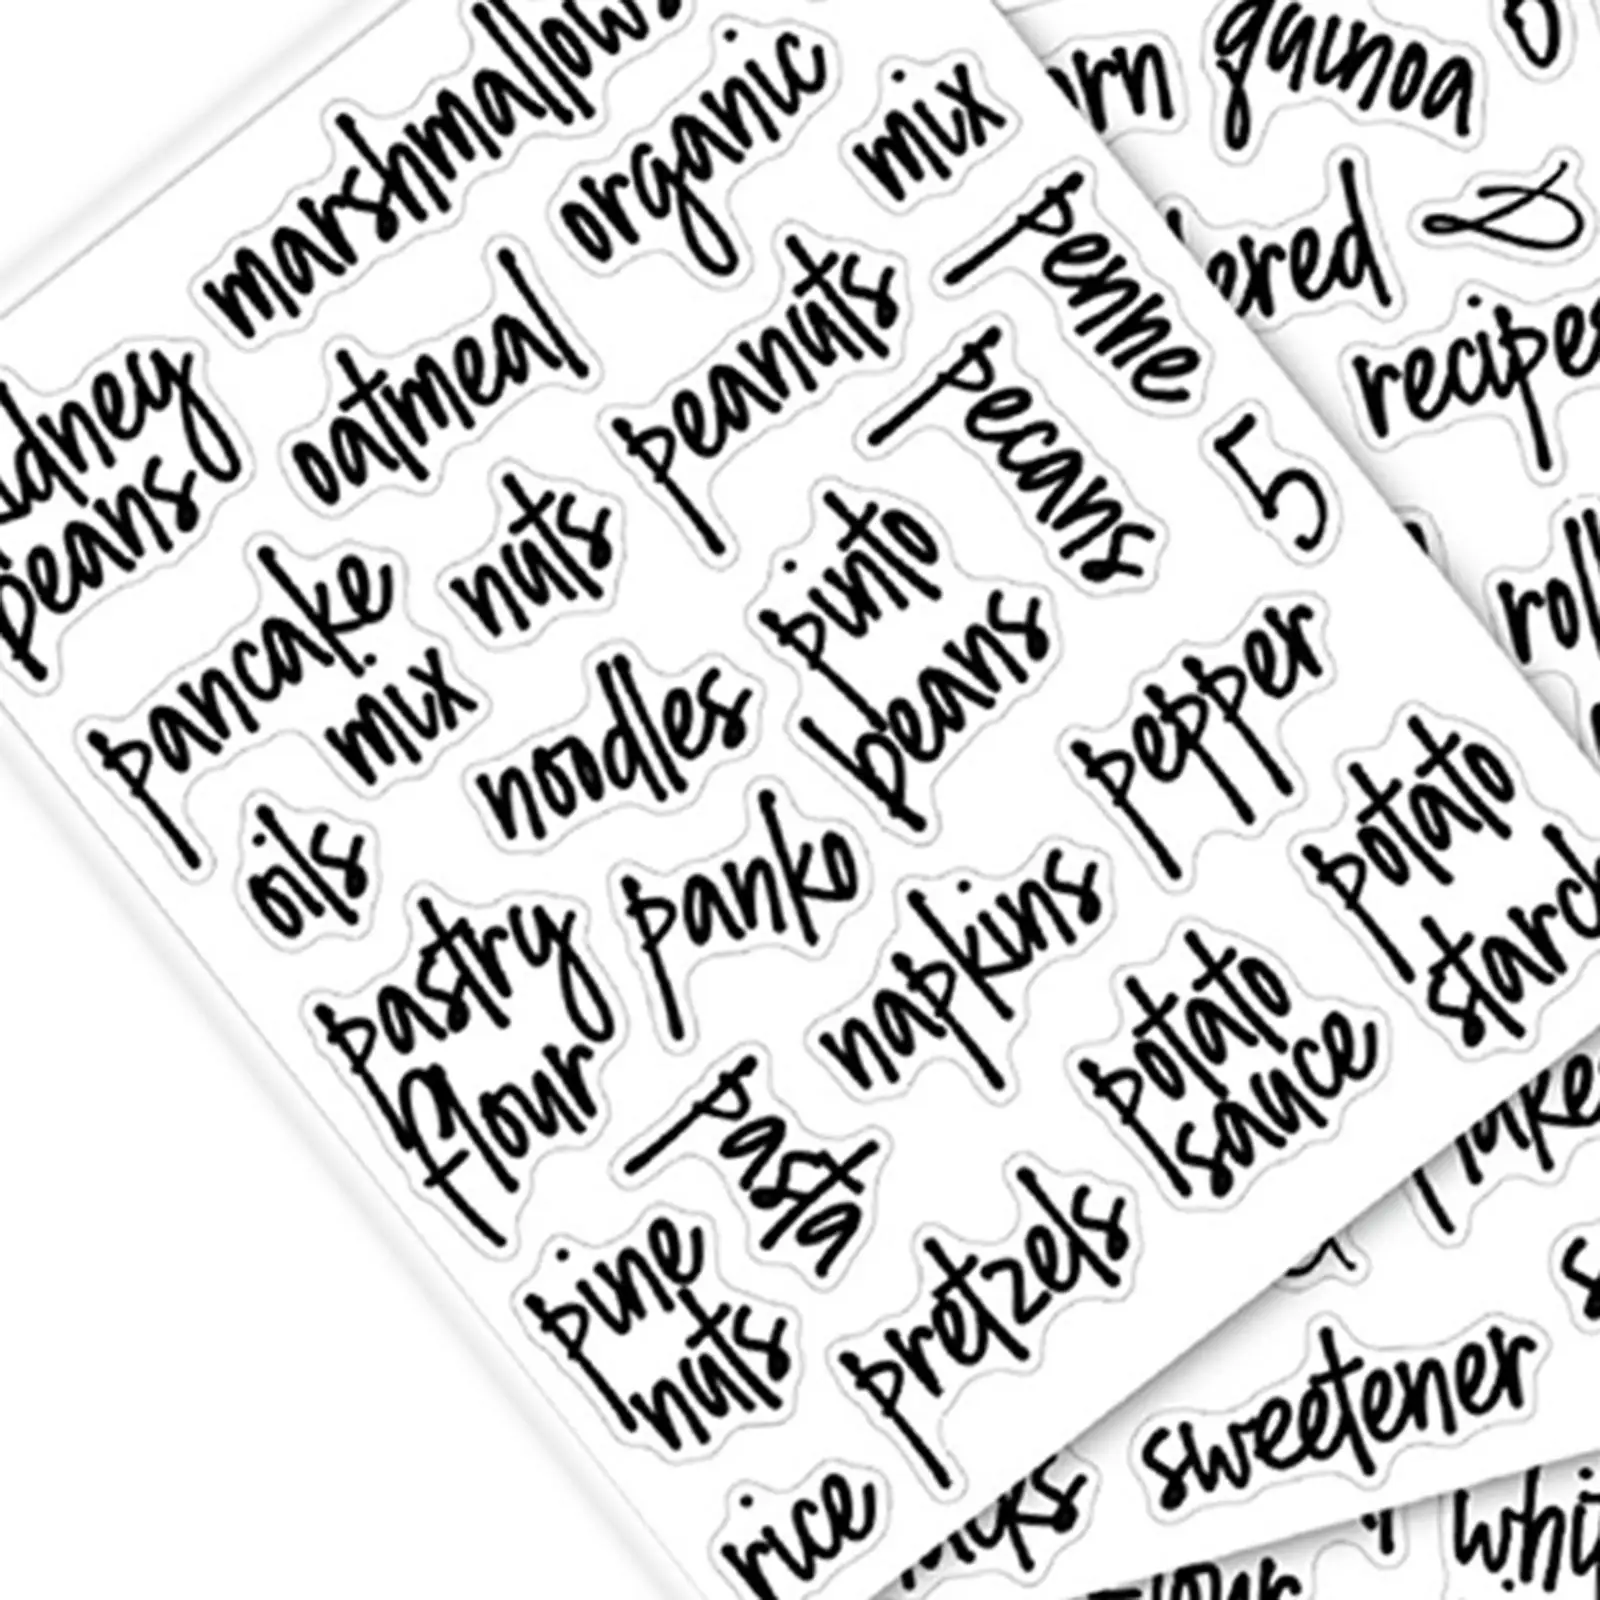 marshmallows
organic
mix
kidney
beans
oatmeal
peanuts
penne
pecans
5
pancake
mix
nuts
pinto
beans
oils
noodles
pepper
pastry
flour
panko
napkins
potato
starch
pasta
potato
sauce
pine
nuts
pretzels
rice
quinoa
&
recipes
sweetener